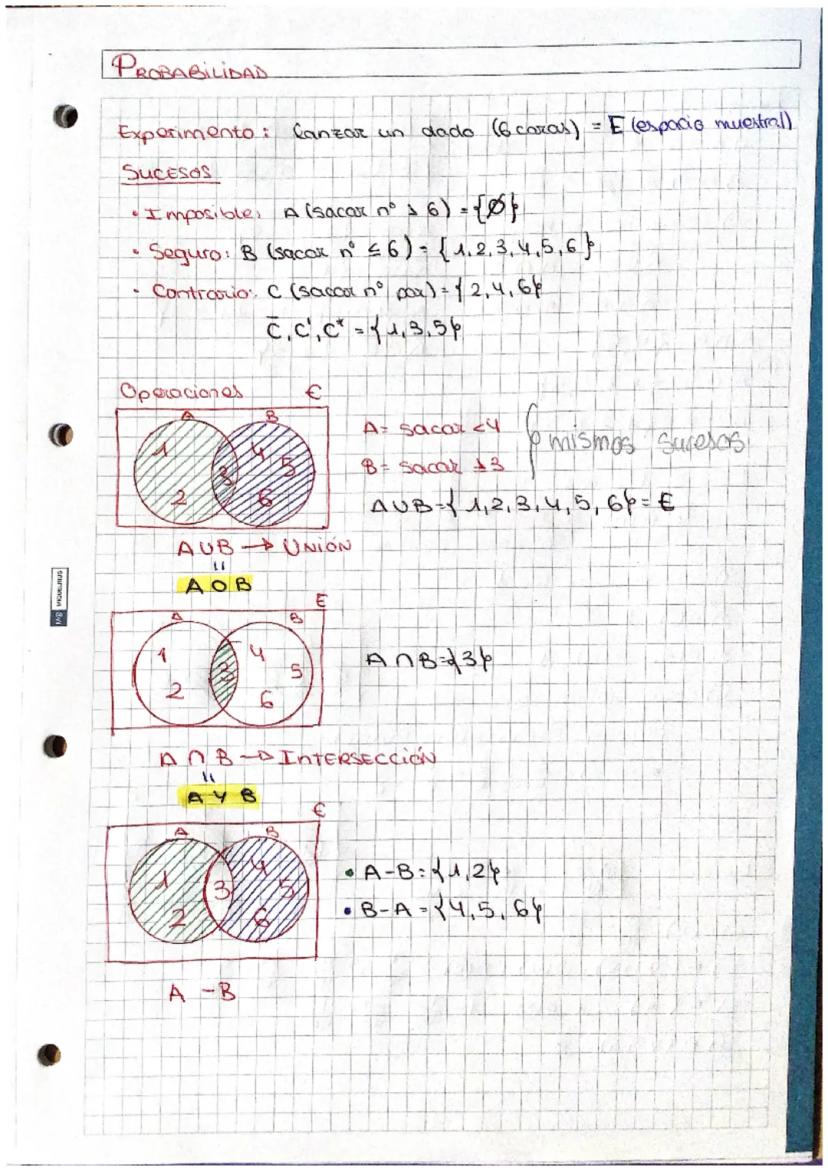 PROBABILIDAD
Experimento: Lanzar un dado (6 caras) = E (espacio muestral)
SUCESOS
• Imposible: A (sacar nº > 6) = {Ø}
• Seguro: B (sacar nº ≤ 6) = {1, 2, 3, 4, 5, 6}
• Contrario: C (sacar nº par) = {2, 4, 6}
C̅, C', C* = {1, 3, 5}
Operaciones E
A B
1 2 3 4 5 6
A = sacar < 4
B = sacar ≥ 3
mismos sucesos
A∪B = {1, 2, 3, 4, 5, 6} = E
A∪B → UNIÓN
"
A O B
E
A B
1 2 3 4 5 6
A∩B = {3}
A ∩ B → INTERSECCIÓN
"
A Y B
E
A B
1 2 3 4 5 6
• A-B = {1, 2}
• B-A = {4, 5, 6}
A - B